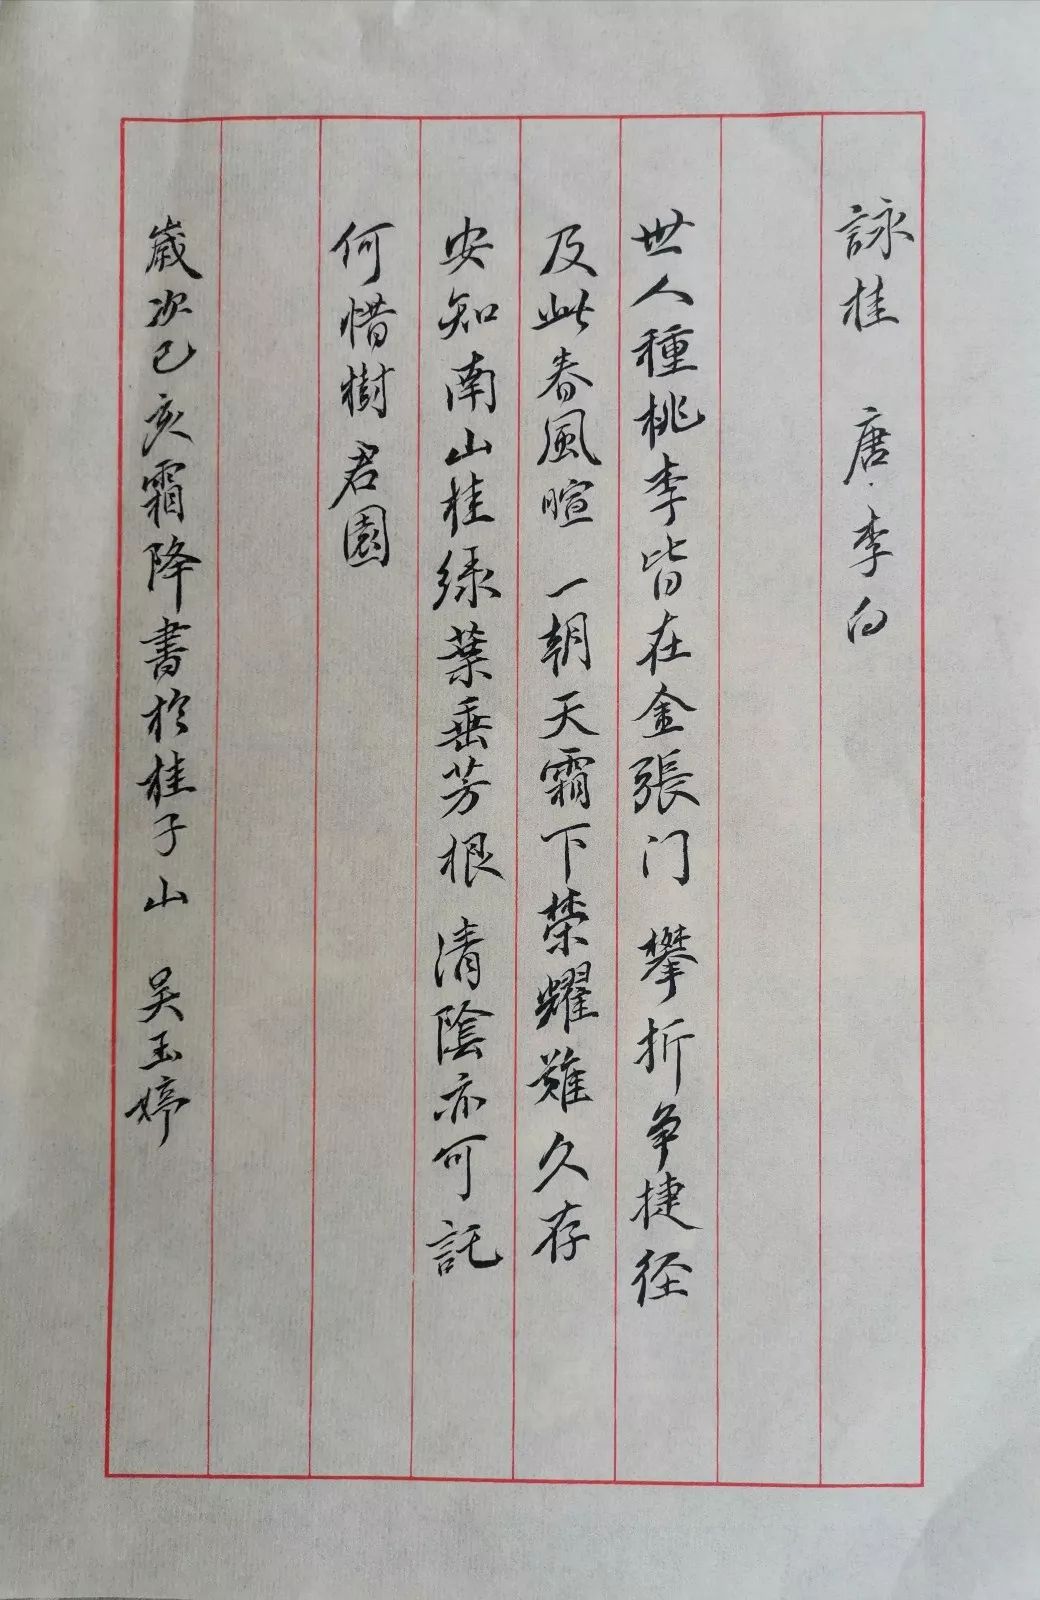 詠桂 唐·李白
世人種桃李皆在金張门 攀折争捷径
及此春風暄 一朝天霜下荣耀難久存
安知南山桂綠葉垂芳根 清陰亦可託
何惜樹君園
歲次己亥霜降書於桂子山 吴玉婷